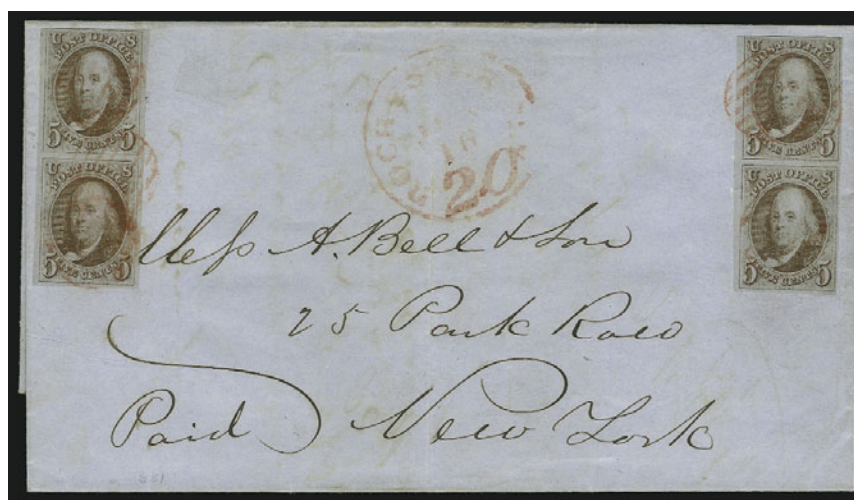 U S
POST OFFICE
FIVE CENTS
5 5
U S
POST OFFICE
FIVE CENTS
5 5
ROCHESTER
20
U S
POST OFFICE
FIVE CENTS
5 5
U S
POST OFFICE
FIVE CENTS
5 5
Mess A. Bell & Son
25 Park Row
Paid New York